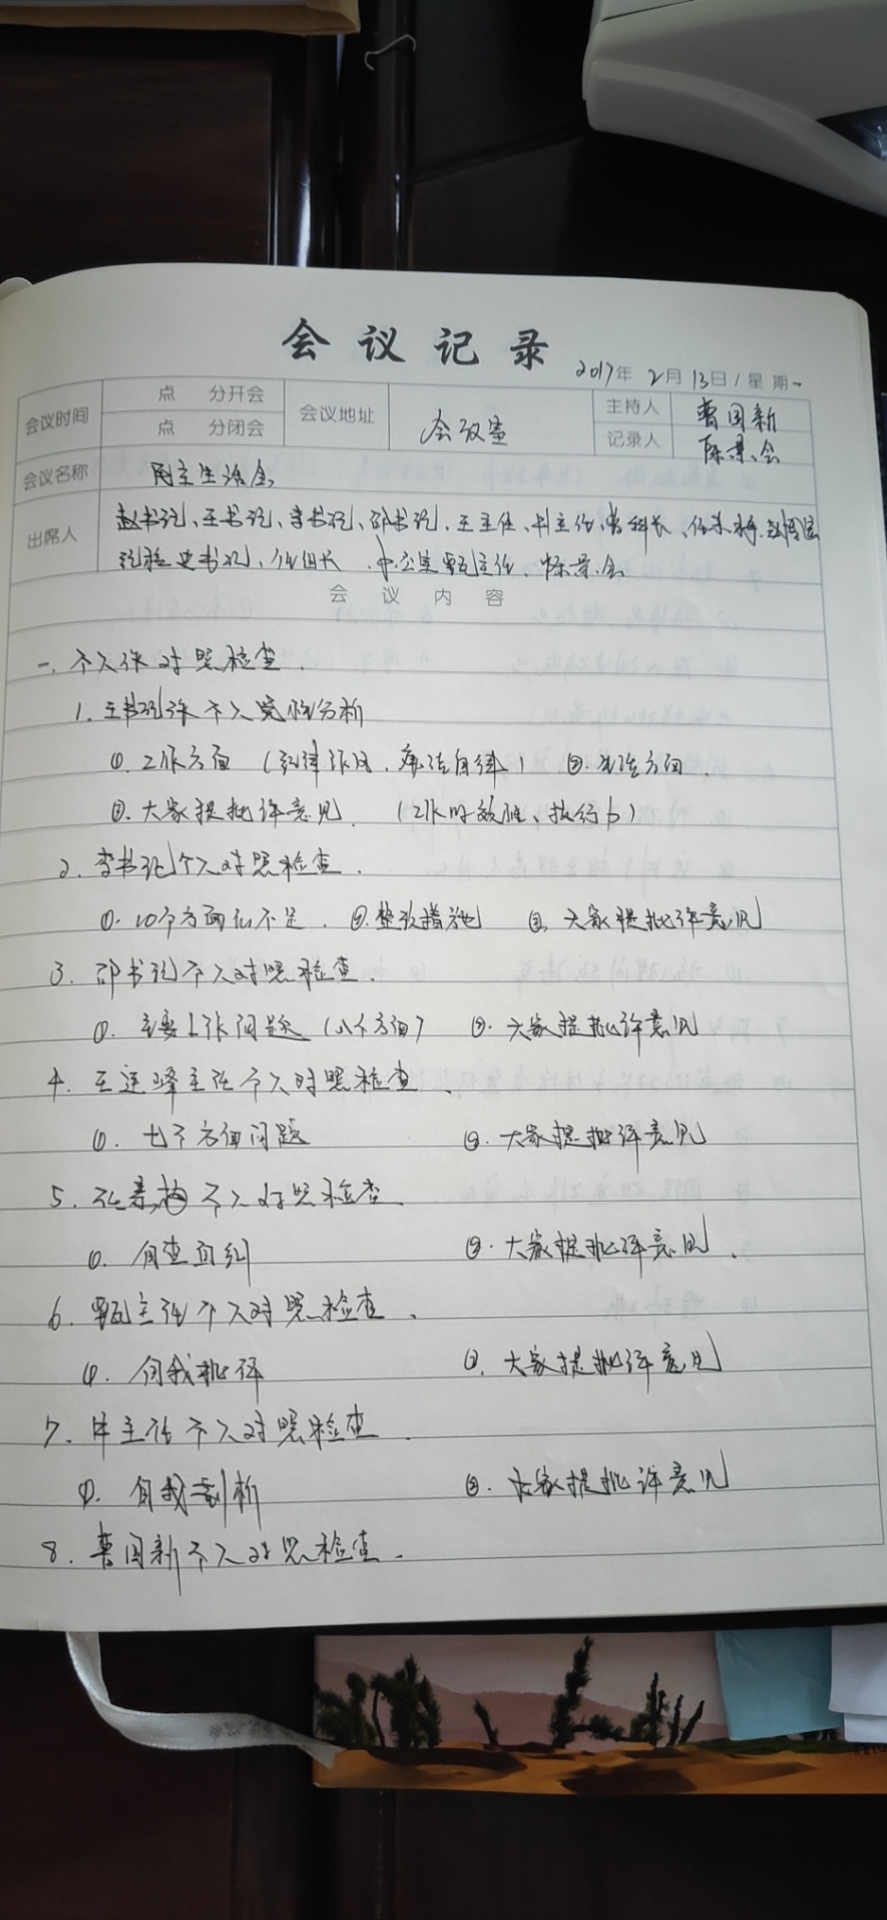 会议记录
2017年2月13日/星期一
会议时间 点 分开会 会议地址 会议室 主持人 曹国新
点 分闭会 记录人 陈景会
会议名称 民主生活会
出席人 赵书记、王书记、李书记、邵书记、王主任、牛主任、曹科长、
纪检史书记、 甄主任、陈景会
会议内容
一、个人作对照检查.
1. 王书记作个人党性分析
①. 工作方面(纪律作风、廉洁自律) ②. 生活方面.
③. 大家提批评意见. (工作时效性、执行力)
2. 李书记个人对照检查.
①. 10个方面的不足. ②. 整改措施 ③. 大家提批评意见
3. 邵书记个人对照检查.
①. 主要工作问题(八个方面) ②. 大家提批评意见
4. 王连峰主任个人对照检查.
①. 七个方面问题 ②. 大家提批评意见
5. 个人对照检查.
①. 自查自纠 ②. 大家提批评意见.
6. 甄主任个人对照检查.
①. 自我批评 ②. 大家提批评意见
7. 牛主任个人对照检查.
①. 自我剖析 ②. 大家提批评意见
8. 曹国新个人对照检查.